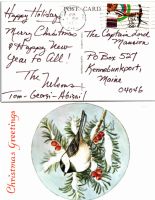 Happy Holidays!
POST CARD
Merry Christmas
& Happy New
Year to All!
The
Tom - Georgi - Abigail
The Captain Lord
Mansion
PO Box 527
Kennebunkport,
Maine
04046
Christmas Greetings